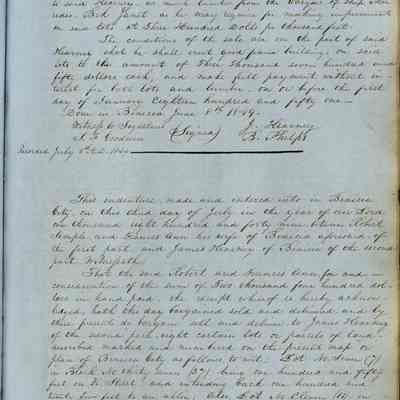 to said Hearney, as much lumber from the cargo of ship
Jenet as he may require for making improvements
on said lots at Three Hundred Dolls pr thousand feet.
The conditions of the sale are on the part of said
Hearney that he shall erect and frame buildings on said
lots to the amount of Three Thousand seven hundred and
fifty dollars cash, and make full payment without in-
terest for both lots and lumber, on or before the first
day of January Eighteen hundred and fifty one—
Done in Benicia June 8th 1849.
Witness to Signature (Signed) J. Hearney
Goodwin B. Phelps
Recorded July 5th 1849
This indenture, made and entered into in Benicia
City, on this third day of July in the year of our Lord
one thousand eight hundred and forty nine between Robert
Semple and Frances Ann his wife of Benicia aforesaid of
the first part, and James Hearney of Benicia of the second
part. Witnesseth.
That the said Robert and Frances Ann for and in
consideration of the sum of Two thousand four hundred dol-
lars in hand paid, the receipt whereof is hereby acknow-
ledged, hath this day bargained sold and delivered and by
these presents do bargain sell and deliver to James Hearney
of the second part, eight certain lots or parcels of land
described marked and numbered on the present map or
plan of Benicia City as follows to wit. Lot No Seven (7)
in Block No thirty two (32) being one hundred and fifty
feet on K Street and extending back one hundred and
twenty five feet to an alley, Also Lot No Eleven (11) in